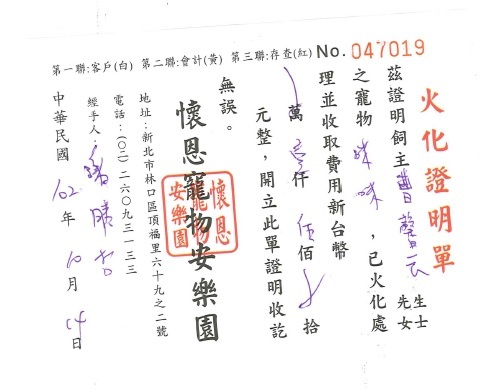 第一聯:客戶(白) 第二聯:會計(黃) 第三聯:存查(紅) No. 047019
火化證明單
茲證明飼主 先生女士
之寵物 咪咪 ,已火化處
理並收取費用新台幣
萬 仟 佰 拾
元整,開立此單證明收訖
無誤。
懷恩寵物安樂園
懷恩寵物安樂園
地址:新北市林口區頂福里六十九之二號
電話:(〇二)二六〇九三一三三
經手人:
中華民國 102 年 10 月 14 日